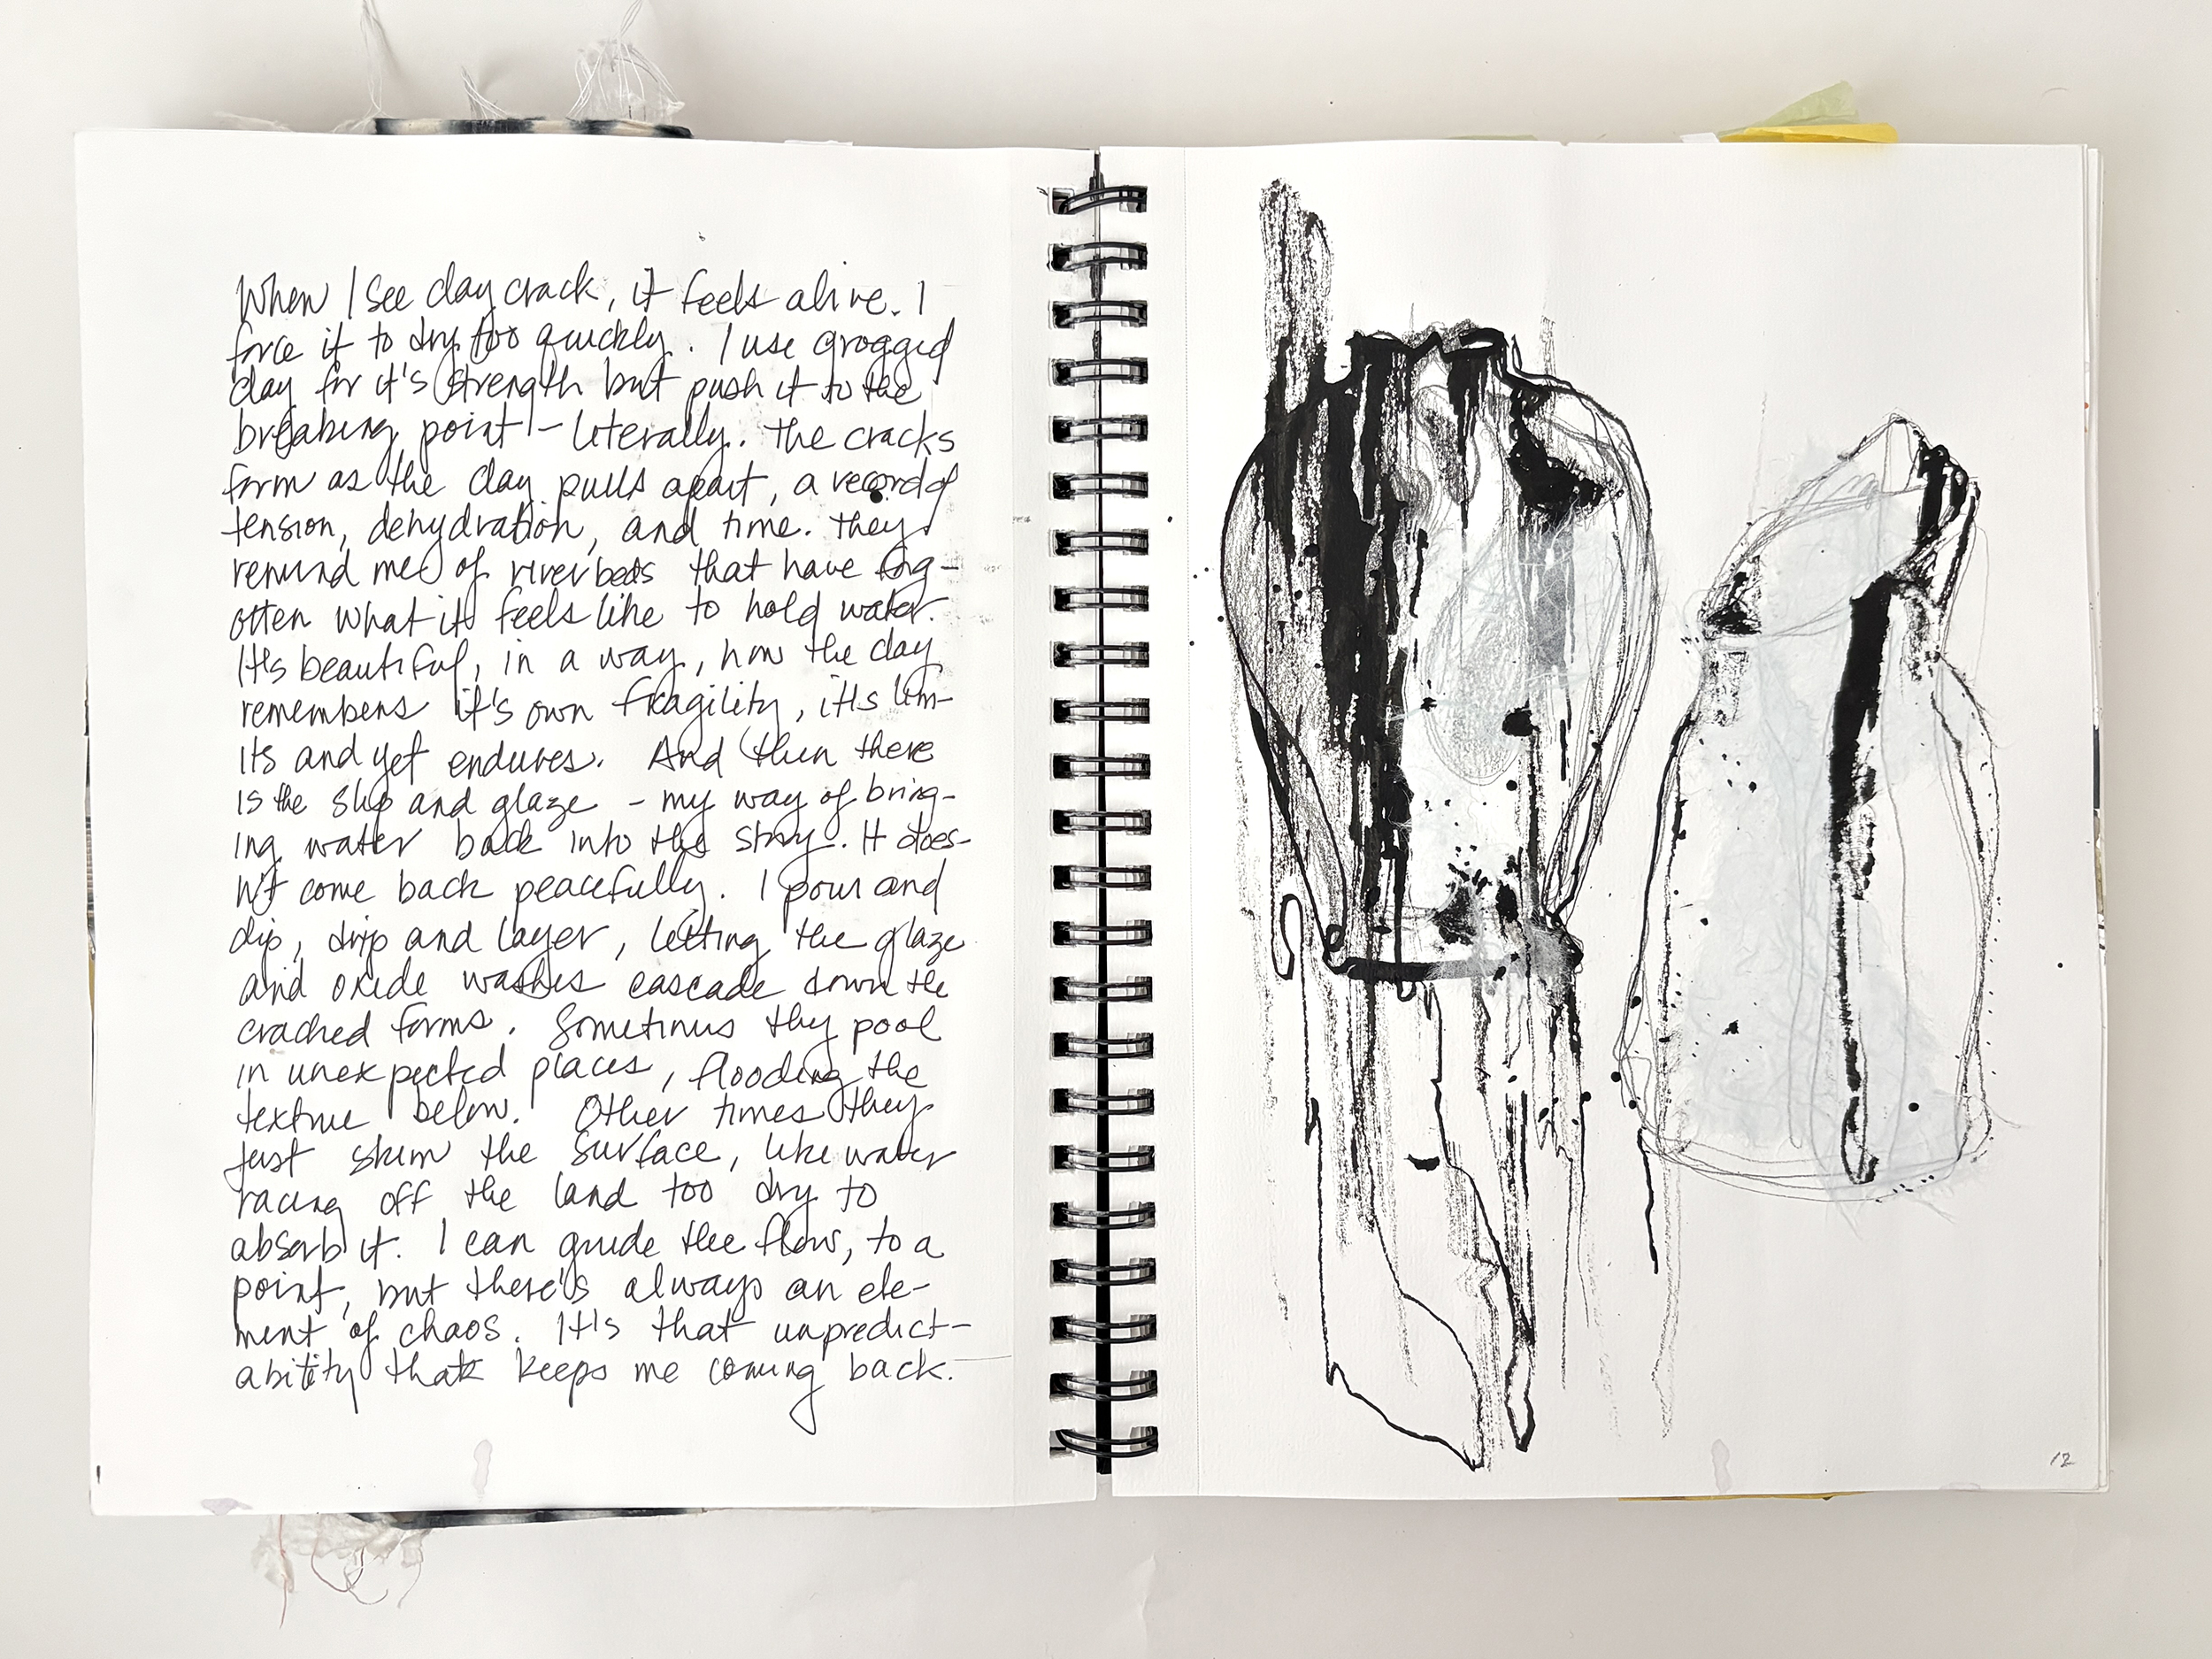 When I see clay crack, it feels alive. I
force it to dry too quickly. I use grogged
clay for it's strength but push it to the
breaking point - literally. The cracks
form as the clay pulls apart, a record of
tension, dehydration, and time. They
remind me of riverbeds that have forg-
otten what it feels like to hold water.
It's beautiful, in a way, how the clay
remembers it's own fragility, it's lim-
its and yet endures. And then there
is the slip and glaze - my way of bring-
ing water back into the story. It does-
n't come back peacefully. I pour and
dip, drip and layer, letting the glaze
and oxide washes cascade down the
cracked forms. Sometimes they pool
in unexpected places, flooding the
texture below. Other times they
just skim the surface, like water
racing off the land too dry to
absorb it. I can guide the flow, to a
point, but there's always an ele-
ment of chaos. It's that unpredict-
ability that keeps me coming back.
12